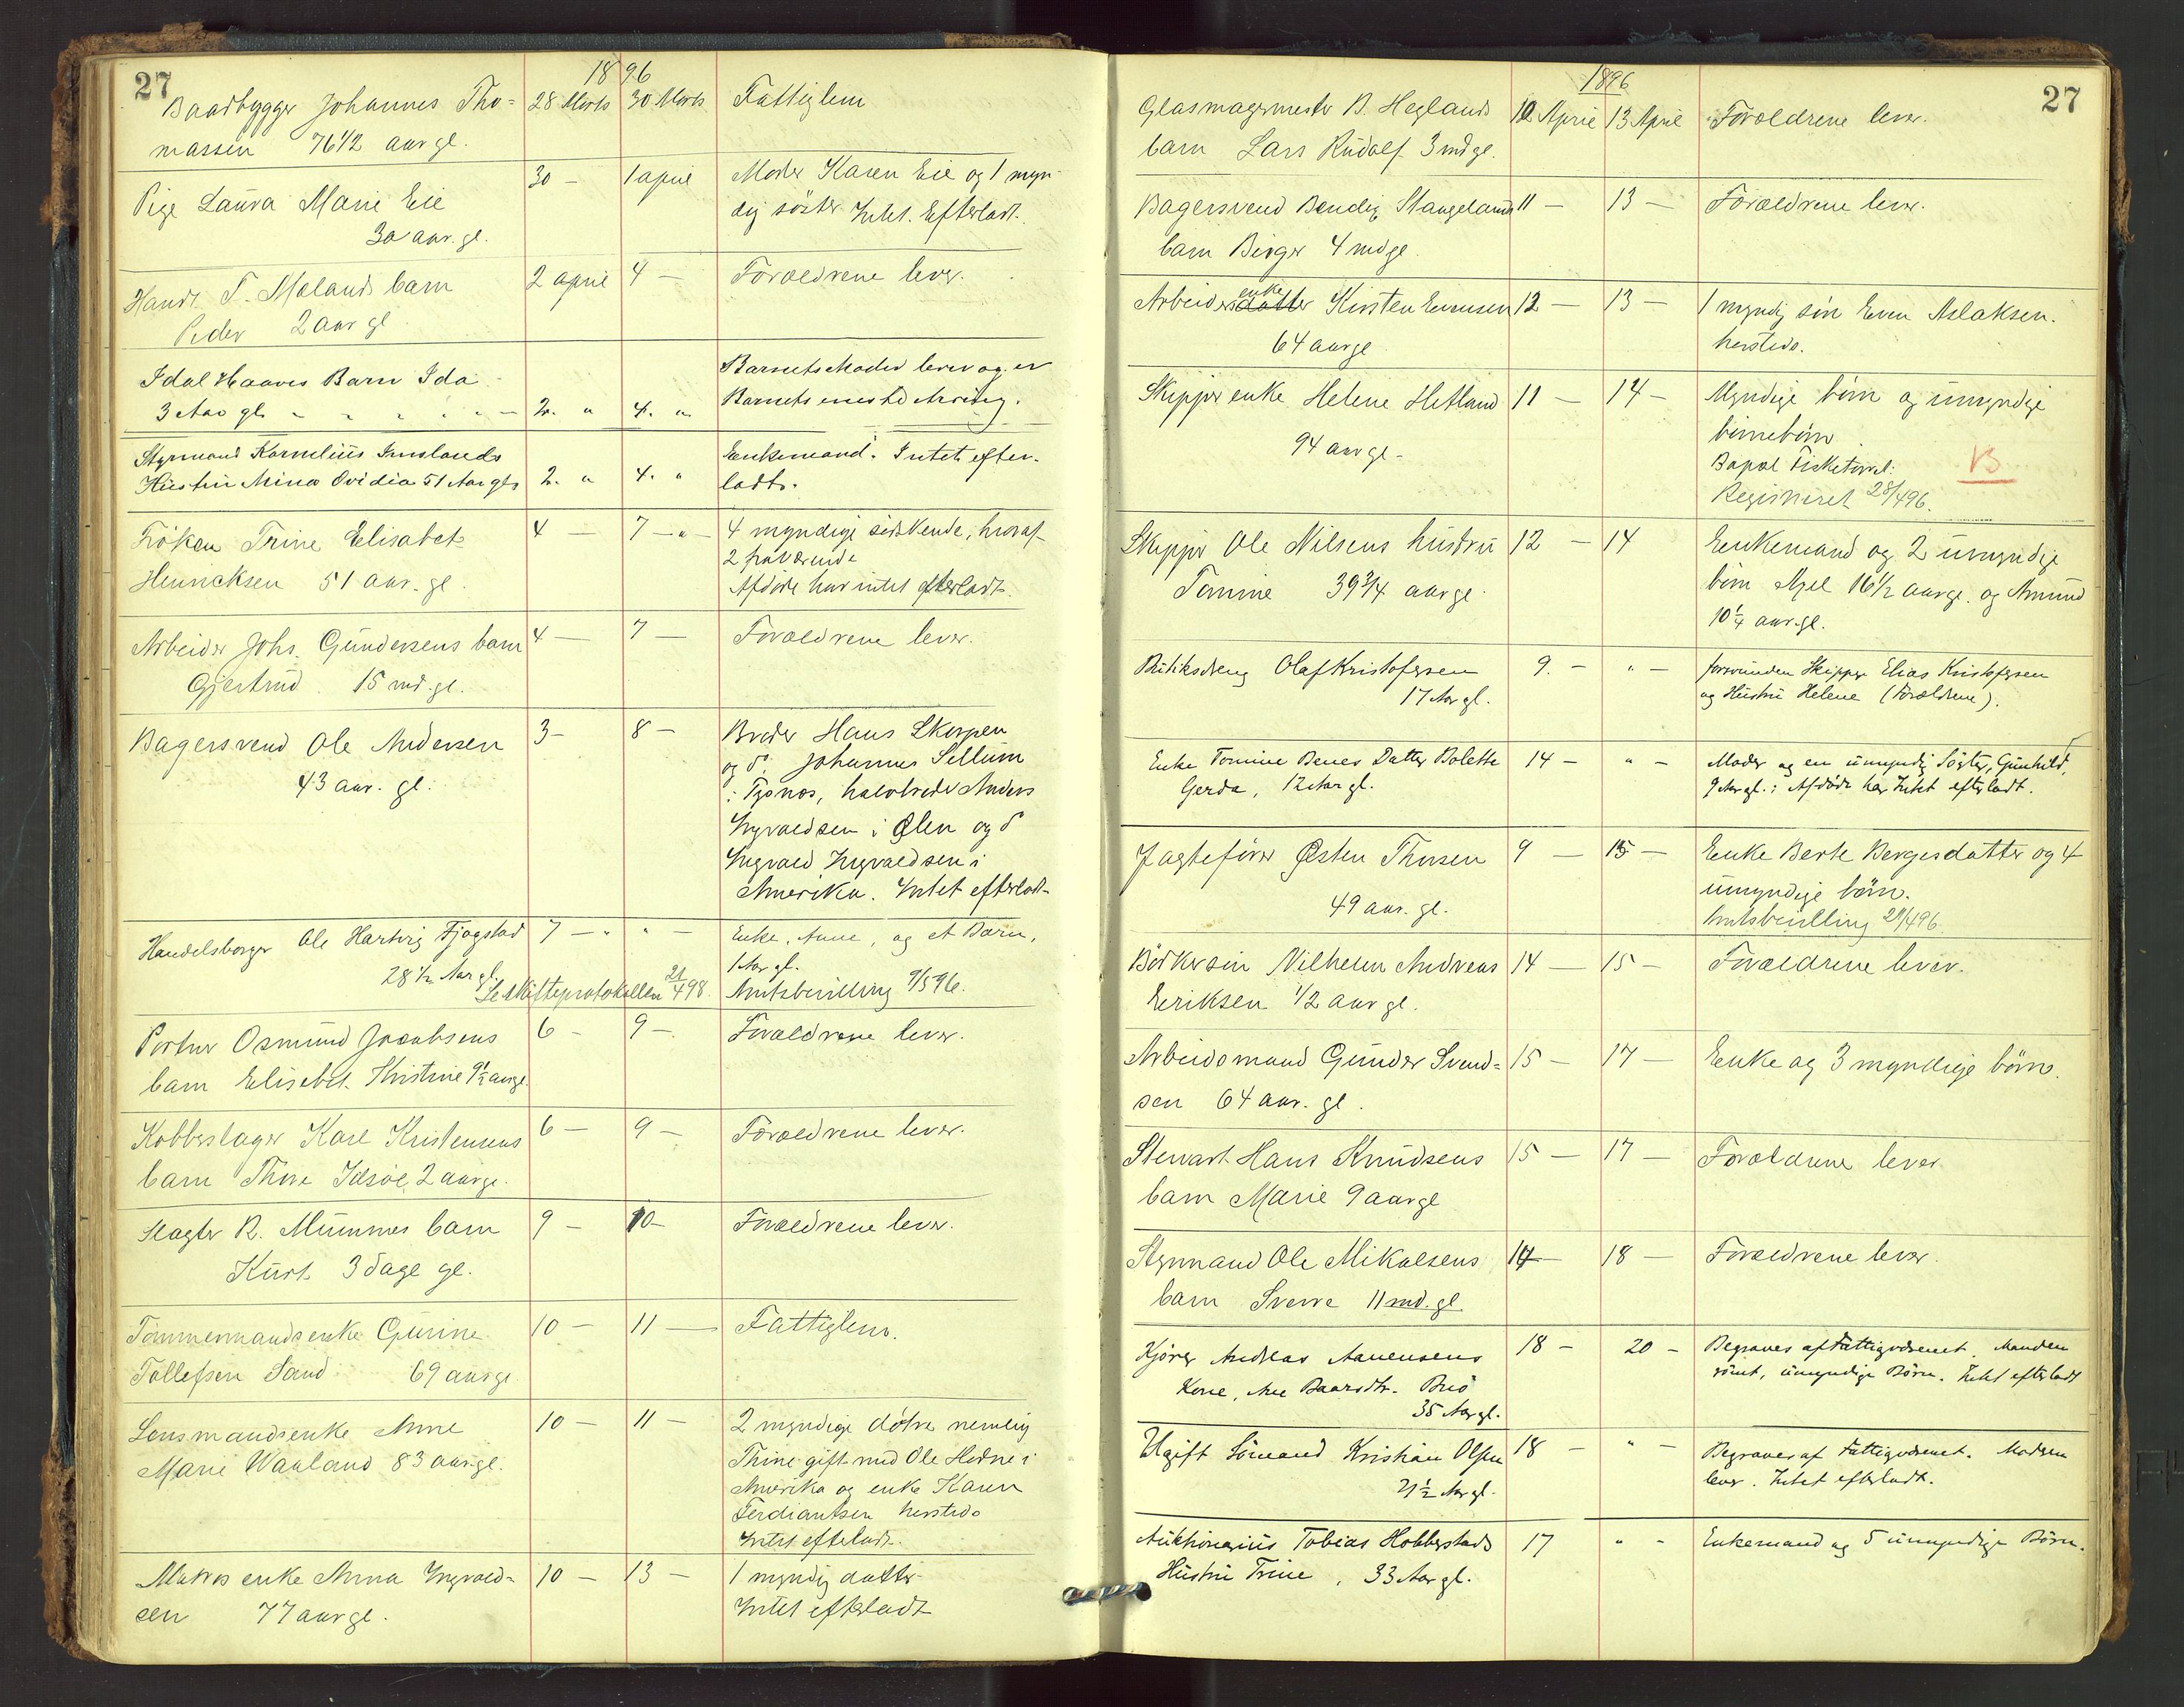 27
1896
Baadbygger Johannes Tho= 28 Marts 30 Marts Fattiglem
massen 76 1/2 aar gl.
Pige Laura Marie Eie 30 — 1 april Moder Karen Eie og 1 myn-
30 aar. gl. dig søster Intet Efterladt.
Handl. T. Molands barn 2 april 4 — Forældrene lever.
Peder 2 aar gl
Idal Haaves Barn Ida Barnets Moder lever og er
3 Aar gl. 2. " 4. " Barnets eneste Arving.
Styrmand Kornelius Imslands Enkemand. Intet efter-
Hustru Mina Ovidia 51 Aar gl. 2. " 4. " ladt.
Frøken Trine Elisabet 4 — 7 — " — 4 myndige sødskende, hvoraf
Henricksen 51 aar. gl. 2 fraværende
Afdøde har intet efterladt.
Arbeider Johs. Gundersens barn 4 — 7 — Forældrene lever.
Gjertrud. 15 md. gl.
Bagersvend Ole Andersen 3 — 8 — Broder Hans Skorpen
43 aar. gl. og do. Johannes Sellum
i Tysnæs, halvbroder Anders
Ingvaldsen i Ølen og do
Ingvald Ingvaldsen i
Amerika. Intet efterladt
Handelsborger Ole Hartvig Fjogstad 7 — " " — Enke, Anne, og et Barn,
28 1/2 Aar gl. 1 Aar gl.
Se Skifteprotokollen 21/4 98. Amtsbevilling 9/5 96.
Portner Osmund Jacobsens 6 — 9 — Forældrene lever.
barn Elisabet Kristine 9 1/2 aargl.
Kobberslager Karl Kristensens 6 — 9 — Forældrene lever.
barn Thora Idsøe 2 aargl.
Slagter R. Mummes barn 9 — 10 — Forældrene lever.
Kurt 3 dage gl.
Tømmermandsenke Gurine 10 — 11 — Fattiglem.
Tollefsen Sand 69 aargl
Lensmandsenke Anne 10 — 11 — 2 myndige døtre nemlig
Marie Waaland 83 aar.gl. Thine gift med Ole Hedne i
Amerika og enke Karen
Ferdiantsen hersteds
Intet efterladt.
Matros enke Anna Ingvald= 10 — 13 — 1 myndig datter
sen 77 aar gl. Intet efterladt
27
1896
Glasmagermester B. Heglands 10 April 13 April Forældrene lever.
barn Lars Rudolf 3 md gl.
Bagersvend Bendig Stangelands 11 — 13 — Forældrene lever.
barn Birger 4 md gl.
Arbeidersdatter enke Kirsten Evensen 12 — 13 — 1 myndig søn Even Aslaksen.
64 aargl hersteds.
Skipper enke Helene Hetland 11 — 14 — Myndige børn og umyndige
94 aar gl. børnebørn.
Bopæl Fisketorvet.
Registreret 28/4 96.
Skipper Ole Nilsens hustru 12 — 14 Enkemand og 2 umyndige
Tomine 39 3/4 aar gl. børn Axel 16 1/2 aargl. og Amund
10 1/4 aar.gl.
Butiksdreng Olaf Kristofersen 9. — " — forsvunden Skipper Elias Kristofersen
17 Aar gl. og Hustru Helene (Forældrene).
Enke Tomine Benes Datter Bolette 14 — " — Moder og en umyndig Søster, Gunhild,
Gerda, 12 Aar gl. 9 Aar gl.: Afdøde har Intet efterladt.
Jagtefører Østen Thorsen 9 — 15 — Enke Berte Bergesdatter og 4
49 aar. gl. umyndige børn.
Amtsbevilling 29/4 96.
Bødkersøn Vilhelm Andreas 14 — 15 — Forældrene lever.
Eriksen 1/2 aar gl.
Arbeidsmand Gunder Svend= 15 — 17 — Enke og 3 myndige børn.
sen 64 aar. gl.
Stewart Hans Knudsens 15 — 17 — Forældrene lever
barn Marie 9 aargl
Styrmand Ole Mikalsens 14 — 18 — Forældrene lever.
barn Sverre 11 md. gl.
Kjører Andreas Aanensens 18 — 20 — Begraves af Fattigvæsenet. Manden
Kone, Ane Baardtr. Brø rømt, umyndige Børn. Intet efterladt
35 Aar gl.
Ugift Sømand Kristian Olsen 18 — " — Begraves af Fattigvæsenet. Moderen
21 1/2 Aar gl. lever. Intet efterladt.
Auktionarius Tobias Hobberstads 17 " — Enkemand og 5 umyndige Børn.
Hustru Trine, 33 Aar gl.